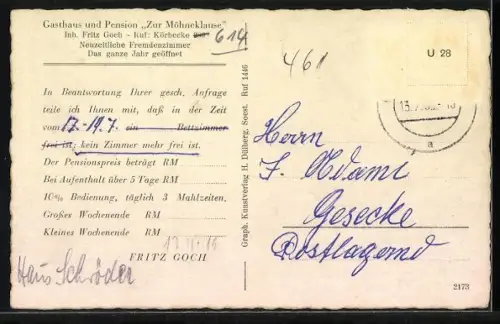 Gasthaus und Pension „Zur Möhneklause"
Inh. Fritz Goch - Ruf: Körbecke 614
Neuzeitliche Fremdenzimmer
Das ganze Jahr geöffnet
In Beantwortung Ihrer gesch. Anfrage
teile ich Ihnen mit, daß in der Zeit
vom 17.-19.7 ein Bettzimmer
frei ist; kein Zimmer mehr frei ist.
Der Pensionspreis beträgt RM
Bei Aufenthalt über 5 Tage RM
10% Bedienung, täglich 3 Mahlzeiten,
Großes Wochenende RM
Kleines Wochenende RM
FRITZ GOCH
Hans Schröder
Graph. Kunstverlag H. Dülberg, Soest. Ruf 1446
461
U 28
a
Herrn
F. Adami
Gesecke
Postlagernd
2173